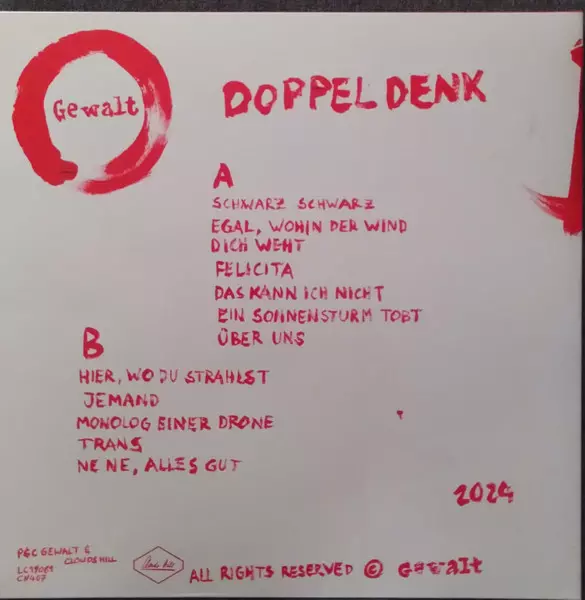 Gewalt
DOPPELDENK
A
SCHWARZ SCHWARZ
EGAL, WOHIN DER WIND
DICH WEHT
FELICITA
DAS KANN ICH NICHT
EIN SONNENSTURM TOBT
ÜBER UNS
B
HIER, WO DU STRAHLST
JEMAND
MONOLOG EINER DRONE
TRANS
NE NE, ALLES GUT
2024
P&C GEWALT &
CLOUDS HILL
ALL RIGHTS RESERVED © Gewalt